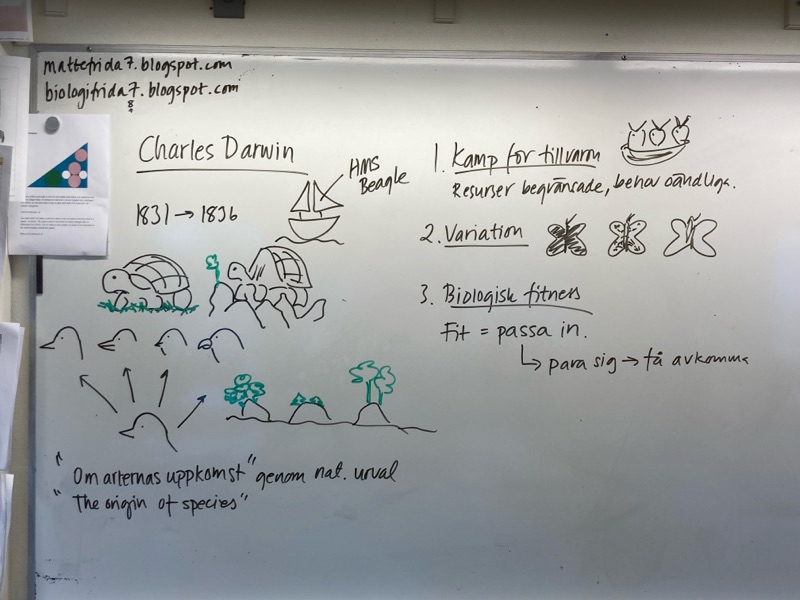 mattefrida7.blogspot.com
biologifrida7.blogspot.com
8
9
Charles Darwin
HMS
Beagle
1831 → 1836
"Om arternas uppkomst" genom nat. urval
"The origin of species"
1. Kamp för tillvaron
Resurser begränsade, behov oändliga.
2. Variation
3. Biologisk fitness
Fit = passa in.
↳ para sig → få avkomma